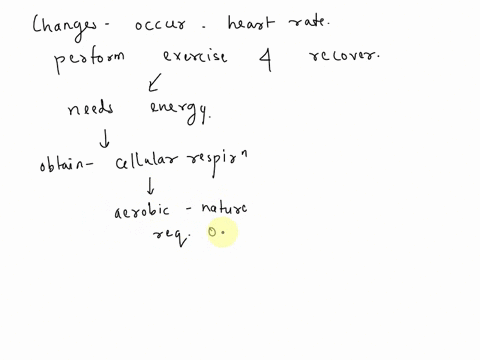 Changes - occur - heart rate.
perform exercise & recover.
needs energy.
obtain - cellular respirⁿ
aerobic - nature
req. O.